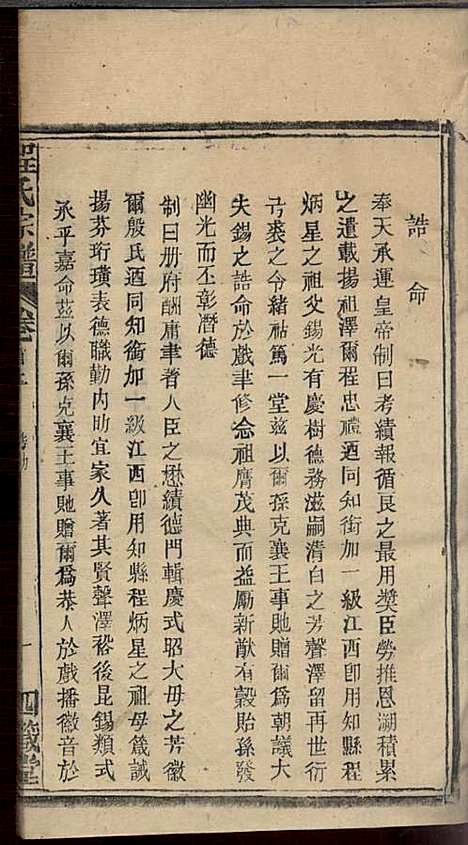 誥命
奉天承運皇帝制曰考績報循良之最用獎臣勞推恩溯積累
之遺載揚祖澤爾程忠禮廼同知銜加一級江西即用知縣程
炳星之祖父錫光有慶樹德務滋嗣清白之芳聲澤留再世衍
弓裘之令緒祜篤一堂茲以爾孫克襄王事貤贈爾爲朝議大
夫錫之誥命於戲聿修念祖膺茂典而益勵新猷有穀貽孫發
幽光而丕彰潛德
制曰册府酬庸聿著人臣之懋績德門輯慶式昭大母之芳徽
爾殷氏廼同知銜加一級江西卽用知縣程炳星之祖母箴誡
揚芬珩璜表德職勤內助宜家久著其賢聲澤裕後昆錫類式
承乎嘉命茲以爾孫克襄王事貤贈爾爲恭人於戲播徽音於
氏宗譜
卷首
四箴堂